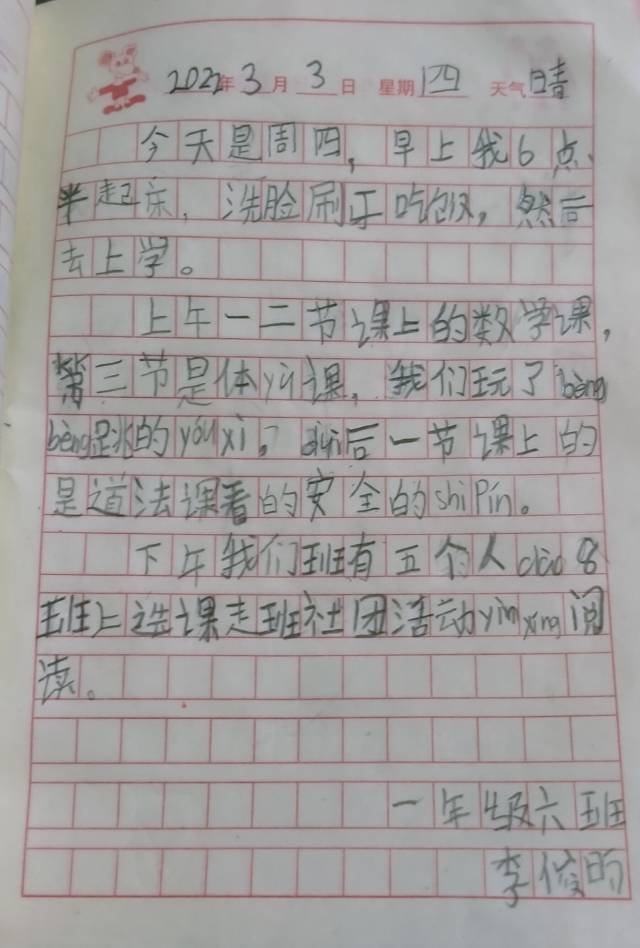 2022年3月3日 星期四 天气晴
今天是周四，早上我6点
半起床，洗脸刷牙吃饭，然后
去上学。
上午一二节课上的数学课，
第三节是体yù课，我们玩了bèng
bèng跳的yóuxì。zuì后一节课上的
是道法课看的安全的shìPín。
下午我们班有五个人dào8
班上选课走班社团活动yìnxìng阅
读。
一年级六班
李俊昀